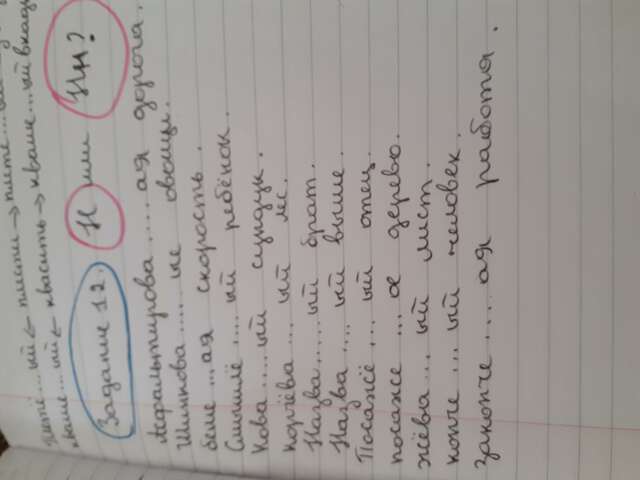 плете...ый ← плести → плете...
кваше...ый ← квасить → кваше...ый
Задание 12. Н или НН?
Асфальтирова.....ая дорога.
Шинкова.....ые овощи.
беше...ая скорость.
Смышлё....ый ребёнок.
Кова....ый сундук.
корчёва...ый лес.
Назва.....ый брат.
Назва....ый выше.
Посажё...ый отец.
посаже...о дерево.
жёва...ый лист.
конче...ый человек.
законче....ая работа.